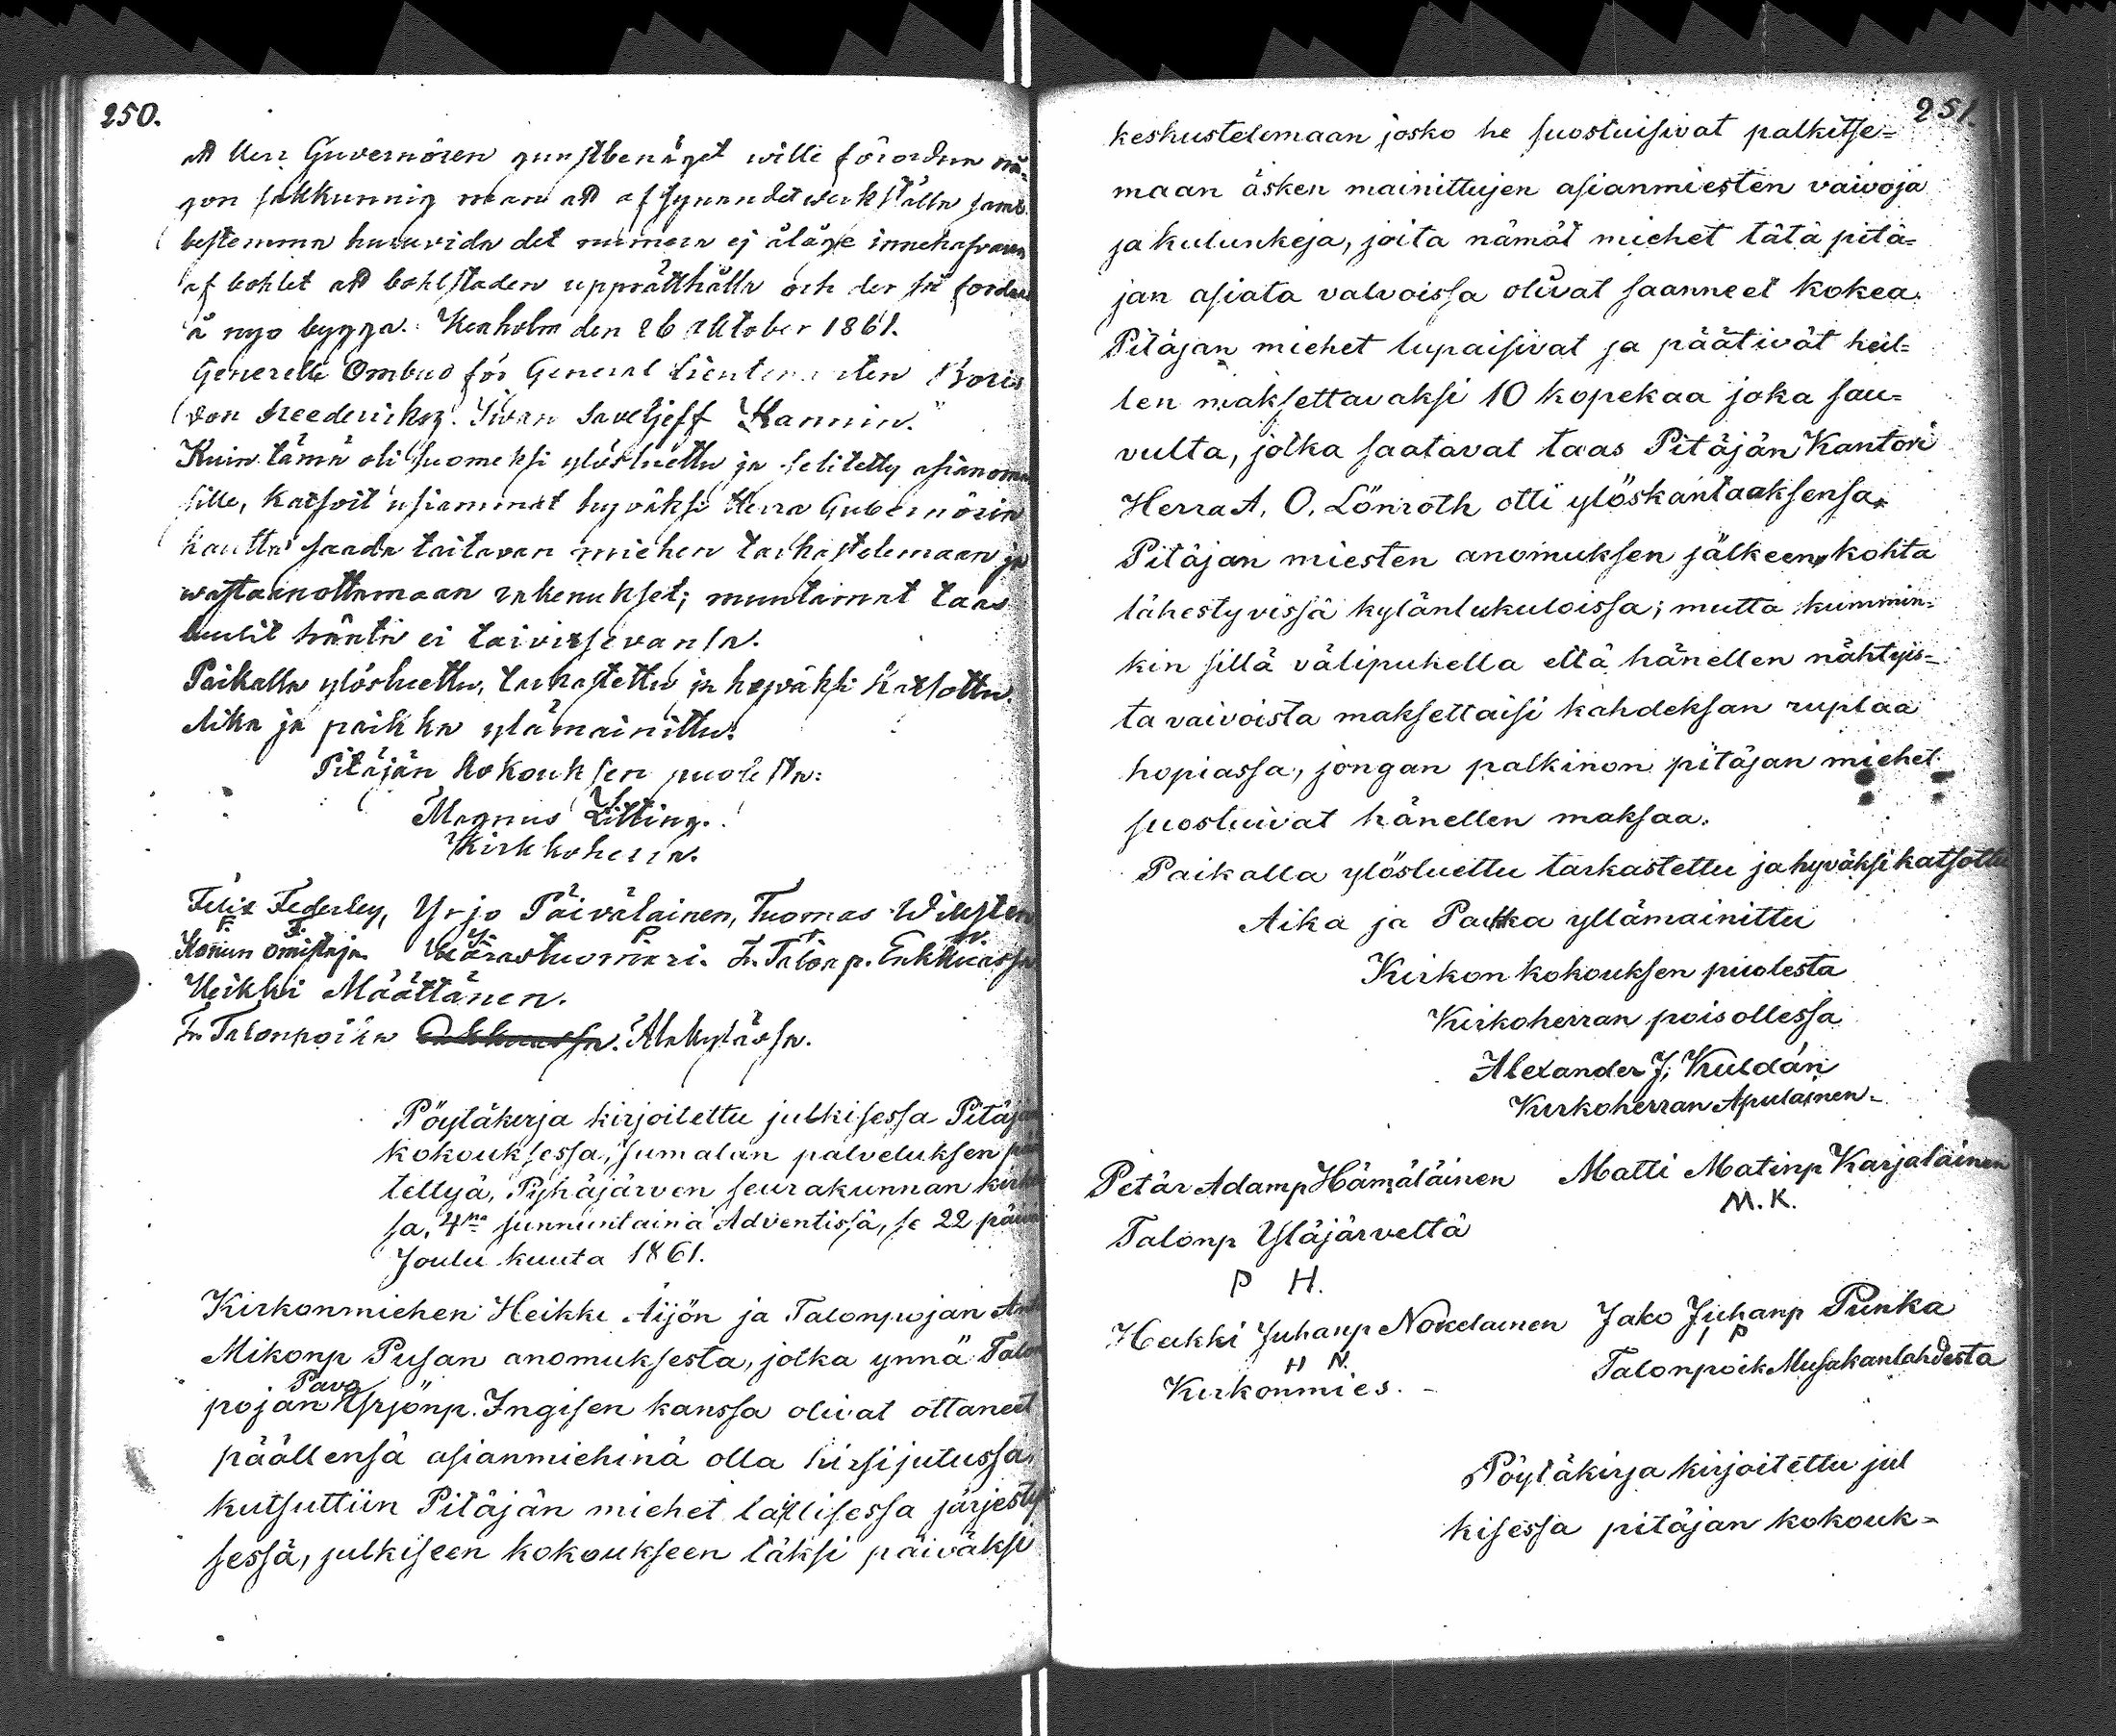 250.
att Herr Guvernören gunstbenäget wille förordna nå-
gon sakkunnig man att afsynandet werkställa samt
bestemma huruvida det numera ej åläge innehafvaren
af bohlet att bohlstaden upprätthålla och der så fordras
å nyo bygga. Kexholm den 26 Oktober 1861.
Generelle Ombud för General Lieutenanten Boris
von Freedericksz. Iwan Saveljeff Hannin."
Kuin tämä oli suomeksi ylösluettu ja selitetty asianoma
sille, katsoit usiammat hyväksi Herra Gubernörin
kautta saada taitavan miehen tarkastelemaan ja
wastaanottamaan rakenukset; muutamat taas
luulit häntä ei taivitsevansa.
Paikalla ylösluettu, tarkastettu ja hyväksi katsottu.
Aika ja paikka ylämainittu.
Pitäjän Kokouksen puolesta:
Magnus Litting.
Kirkkoherra.
Felix Federley, Yrjo Päiväläinen, Tuomas Wilsten
F. F. Y. P. T. W.
Konun omistaja. Kärastuomari. Ln Talonp. Enkkuassa
Heikki Määttänen.
Ln Talonpoika Alakylässa.
Pöytäkerja kirjoitettu julkisessa Pitäjan
kokouksessa, Jumalan palveluksen pää
tettyä, Pyhäjärven seurakunnan kirko
sa, 4na sunnuntaina Adventissä, se 22 päivä
Joulu kuuta 1861.
Kirkonmiehen Heikki Äijön ja Talonpojan Anti
Mikonp Pusan anomuksesta, jotka ynnä Talon
Pavo
pojan Yrjönp. Ingisen kanssa olivat ottaneet
päällensä asianmiehinä olla kirsijutussa,
kutsuttiin Pitäjän miehet laillisessa järjesty
sessä, julkiseen kokoukseen täksi päiväksi
251.
keskustelemaan josko he suostuisivat palkitse-
maan äsken mainittujen asianmiesten vaivoja
ja kulunkeja, joita nämät miehet tätä pitä-
jan asiata valvoissa olivat saanneet kokea.
Pitäjan miehet lupaisivat ja päätivät heil-
len maksettavaksi 10 kopekaa joka sau-
vulta, jotka saatavat taas Pitäjän Kantori
Herra A. O. Lönroth otti ylöskantaaksensa,
Pitäjan miesten anomuksen jälkeen, kohta
lähestyvissä kylänlukuloissa; mutta kummin-
kin sillä välipuhella että hänellen nähtyis-
ta vaivoista maksettaisi kahdeksan ruplaa
hopiassa, jongan palkinon pitäjan miehet
suostuivat hänellen maksaa.
Paikalla ylösluettu tarkastettu ja hyväksi katsottu
Aika ja Paikka yllämainittu
Kirkon kokouksen puolesta
Kirkoherran poisollessa
Alexander J. Kuldán
Kirkoherran Apulainen.
Petär Adamp Hämäläinen Matti Matinp Karjalainen
M. K.
Talonp Yläjärveltä
P H.
Heikki Juhanp Nokelainen Jako Juhanp Punka
H N. I P
Kirkonmies. Talonpoik Musakanlahdesta
Pöytäkirja kirjoitettu jul
kisessa pitäjan kokouk-